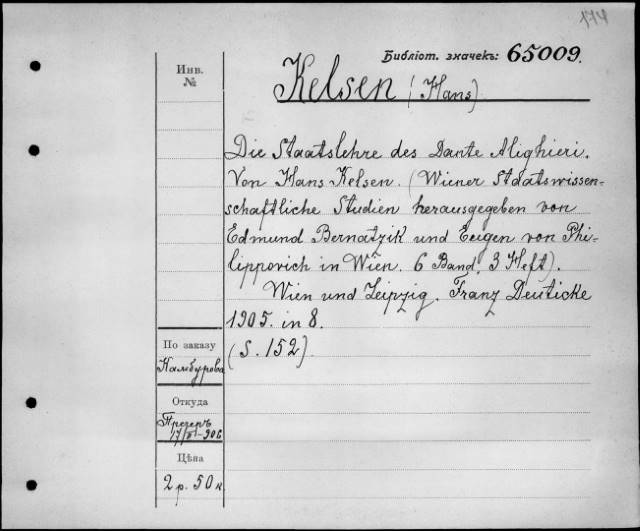 174
Библіот. значекъ: 65009.
Инв.
№
Kelsen (Hans)
Die Staatslehre des Dante Alighieri.
Von Hans Kelsen. (Wiener Staatswissen=
schaftliche Studien herausgegeben von
Edmund Bernatzik und Eugen von Phi-
lippovich in Wien. 6 Band, 3 Heft).
Wien und Leipzig. Franz Deuticke
1905. in 8.
(S. 152)
По заказу
Камбурова
Откуда
17/ -906
Цѣна
2 р. 50 к